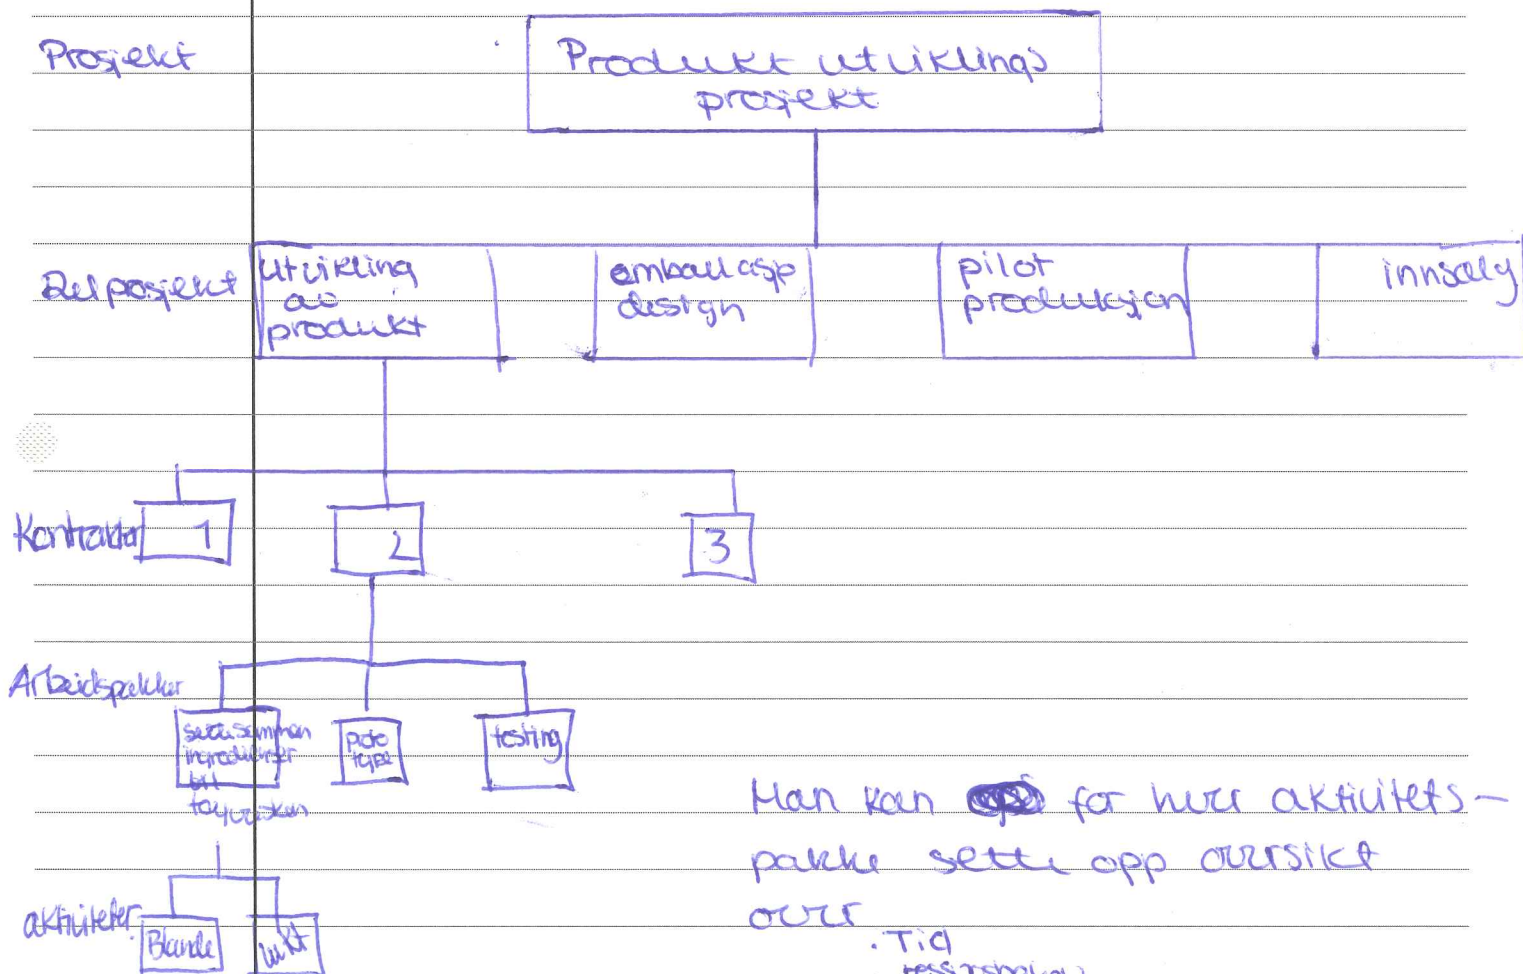 Prosjekt
Produkt utviklings
prosjekt
Delprosjekt
Utvikling
av
produkt
emballasje
design
pilot
produksjon
innsalg
Kontrakter
1
2
3
Arbeidspakker
sette sammen
ingredienser
til
tøyvasken
proto
type
testing
aktiviteter
Blande
lukt
Man kan for hver aktivitets-
pakke sette opp oversikt
over
. Tid